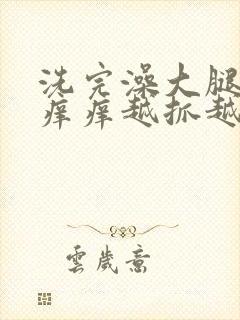 洗完澡大腿
痒痒越抓越
雲歲意